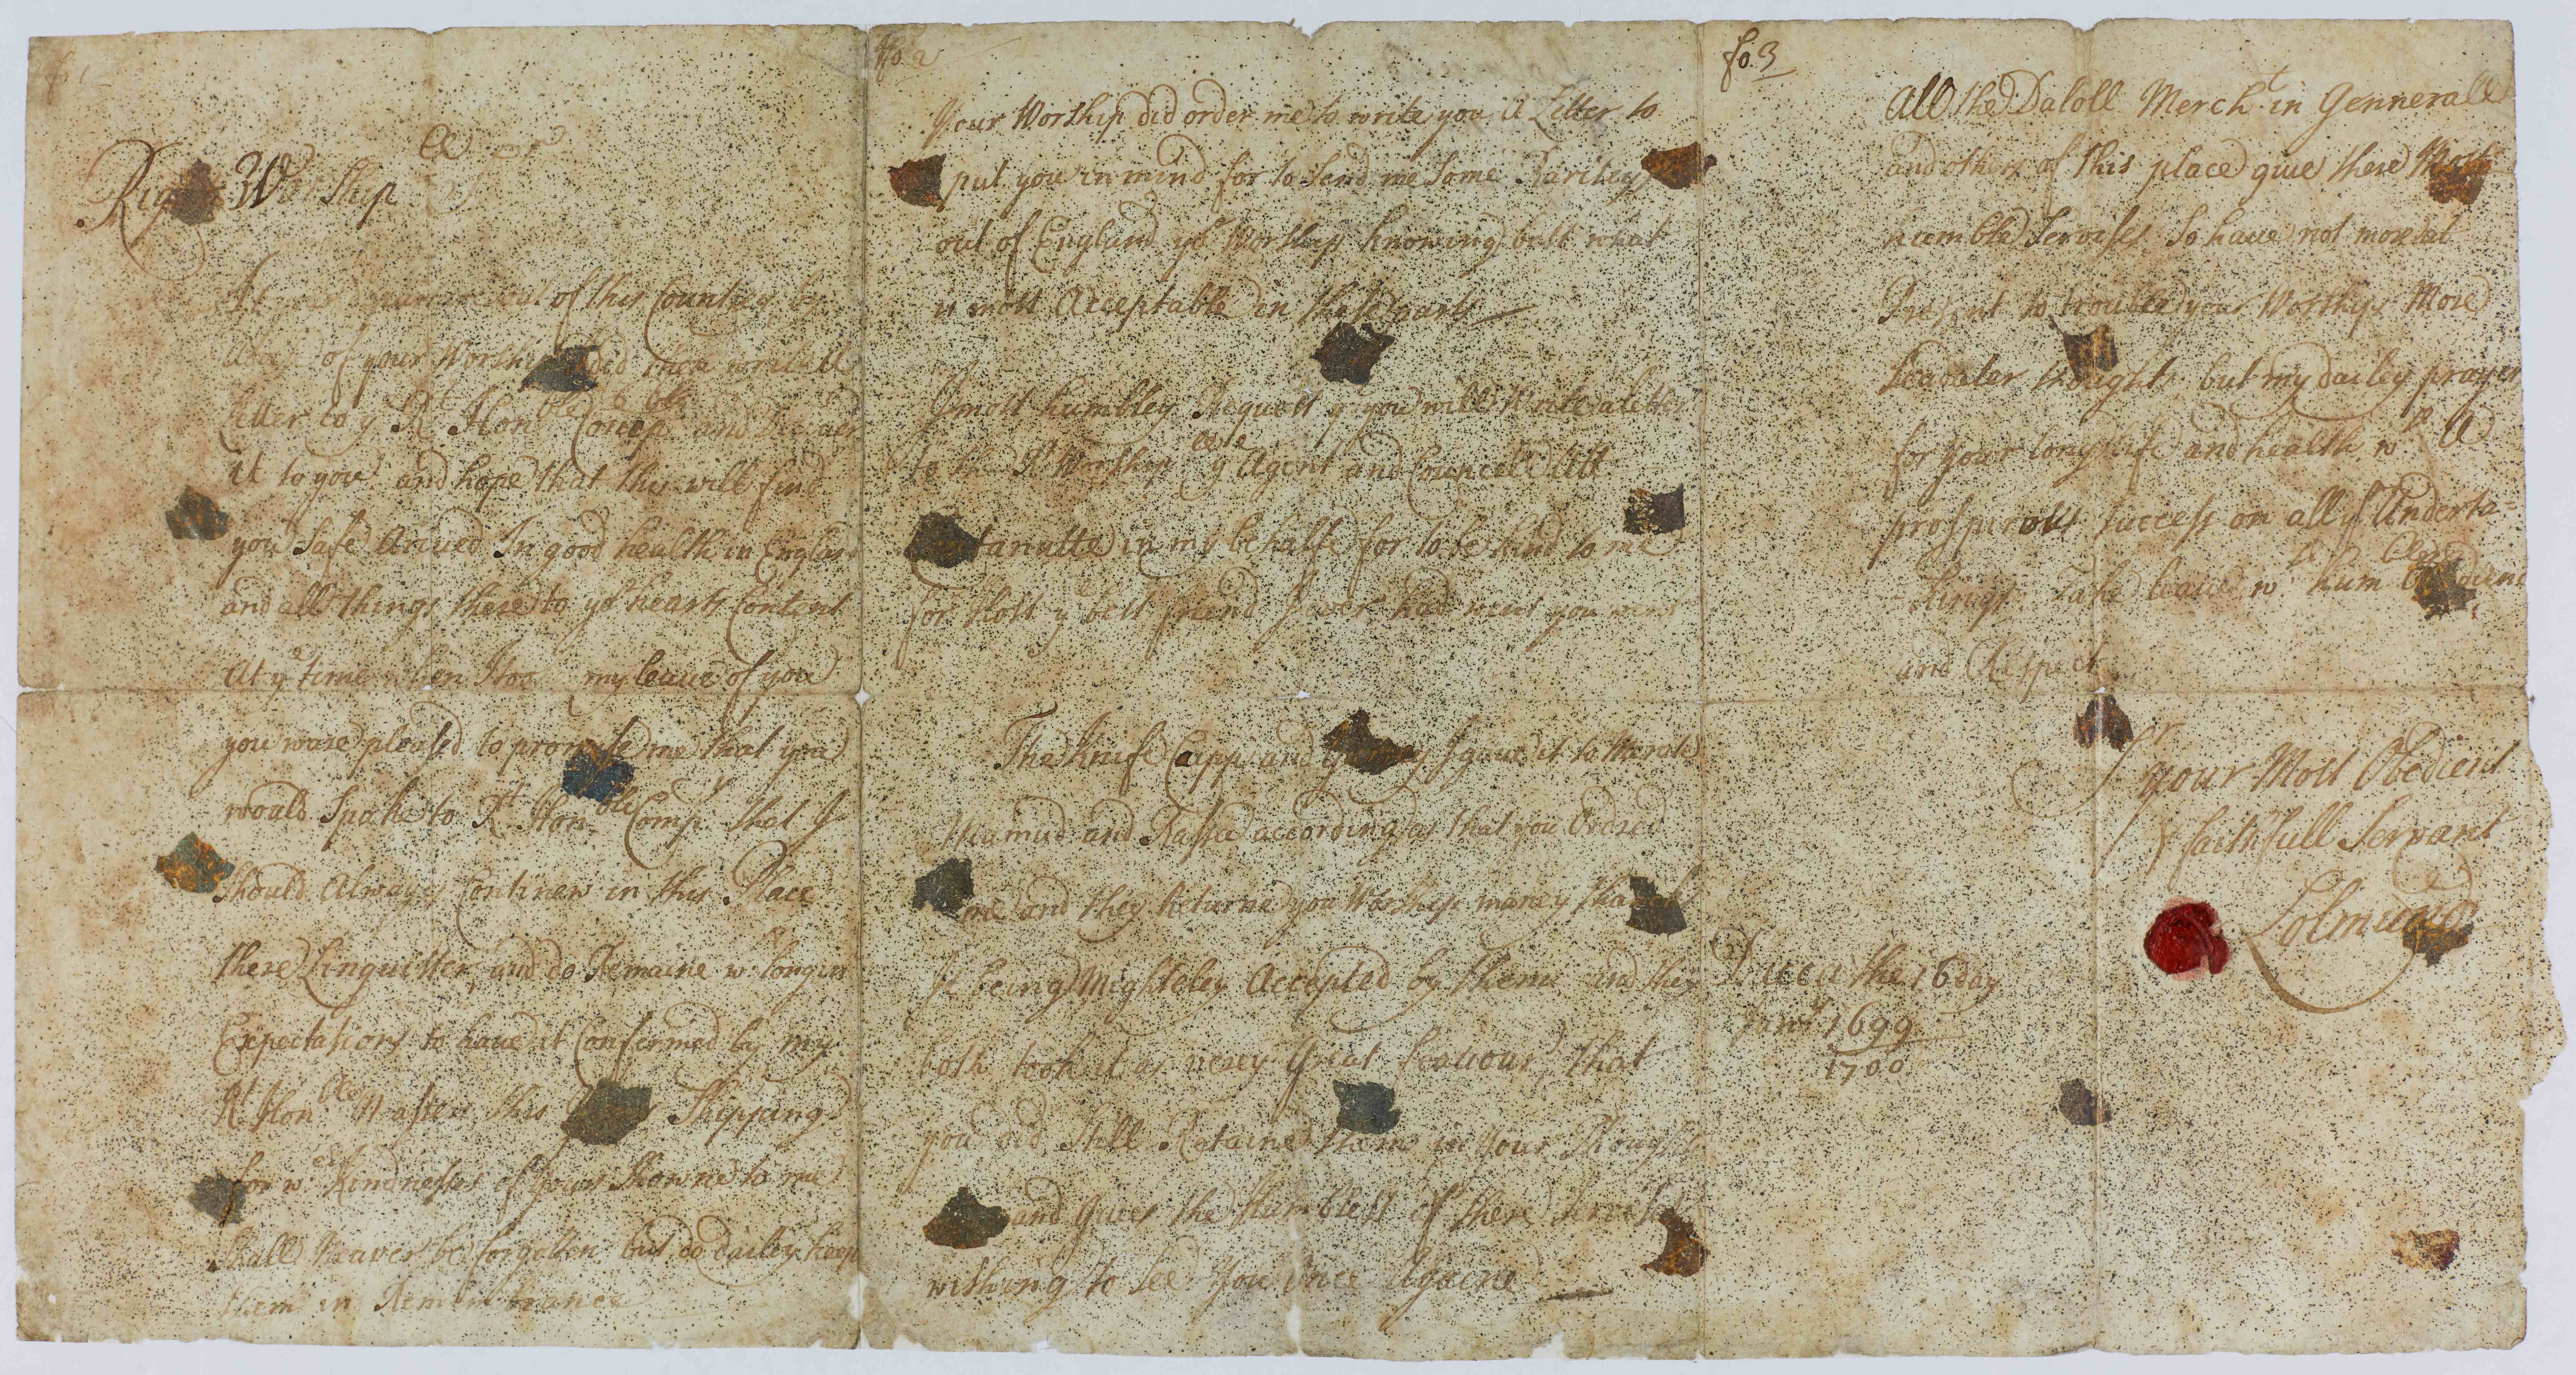 fo 1
Right Worship^ll S^r
At your departure out of this Countrey by
of your Worship did then write a
Letter to y^e R^t Hon^ble Comp^a and deliver
it to you and hope that this will find
you Safe Arived In good health in England
and all things there to yo^r hearts Content
At y^e time when I took my leave of you
you ware pleased to promise me that you
would Speake to R^t Hon^ble Comp^a that I
should Always Continew in this Place
there Linguister and do Remaine w^th longin
Expectations to have it Confermed by my
R^t Hon^ble Master this Shipping
for w^ch Kindnesses of yours Showne to me
Shall Neaver be forgotten but do dailey keep
them in Remembrance
fo. 2
Your Worship did order me to write you A Letter to
put you in mind for to Send me Some Rarityes
out of England yo^r Worship knowing best what
is most Acceptable in these parts
I most humbley Request y^t you will Write a letter
to the R^t Worship^ll y^e Agent and Councell Att
in my behalfe for to be kind to me
for that y^e best friend I ever had
The Knife Capp and I gave it to
Mamud and according as that you Ordred
me and they Returne you Worship maney thanks
It being Mighteley Accepted by them and they
both took it as verey Great feavour that
you did Still Retaine them in Your Thoughts
and Gives the Humblest of there Servises
wishing to See You Once Againe
fo. 3
All the Daloll Merch^t in Gennerall
and others of this place give there Most
humble Servises So have not more at
Present to trouble your Worship More
thoughts but my dailey prayer
for your long life and health w^th A
prosperous success on all yo^r Underta=
=kings Take leave w^th hum^ble Obedience
and Respect
S^r
Your Most Obedient
& faithfull Servant
Dacca the 16 day
Janu^y 1699
1700